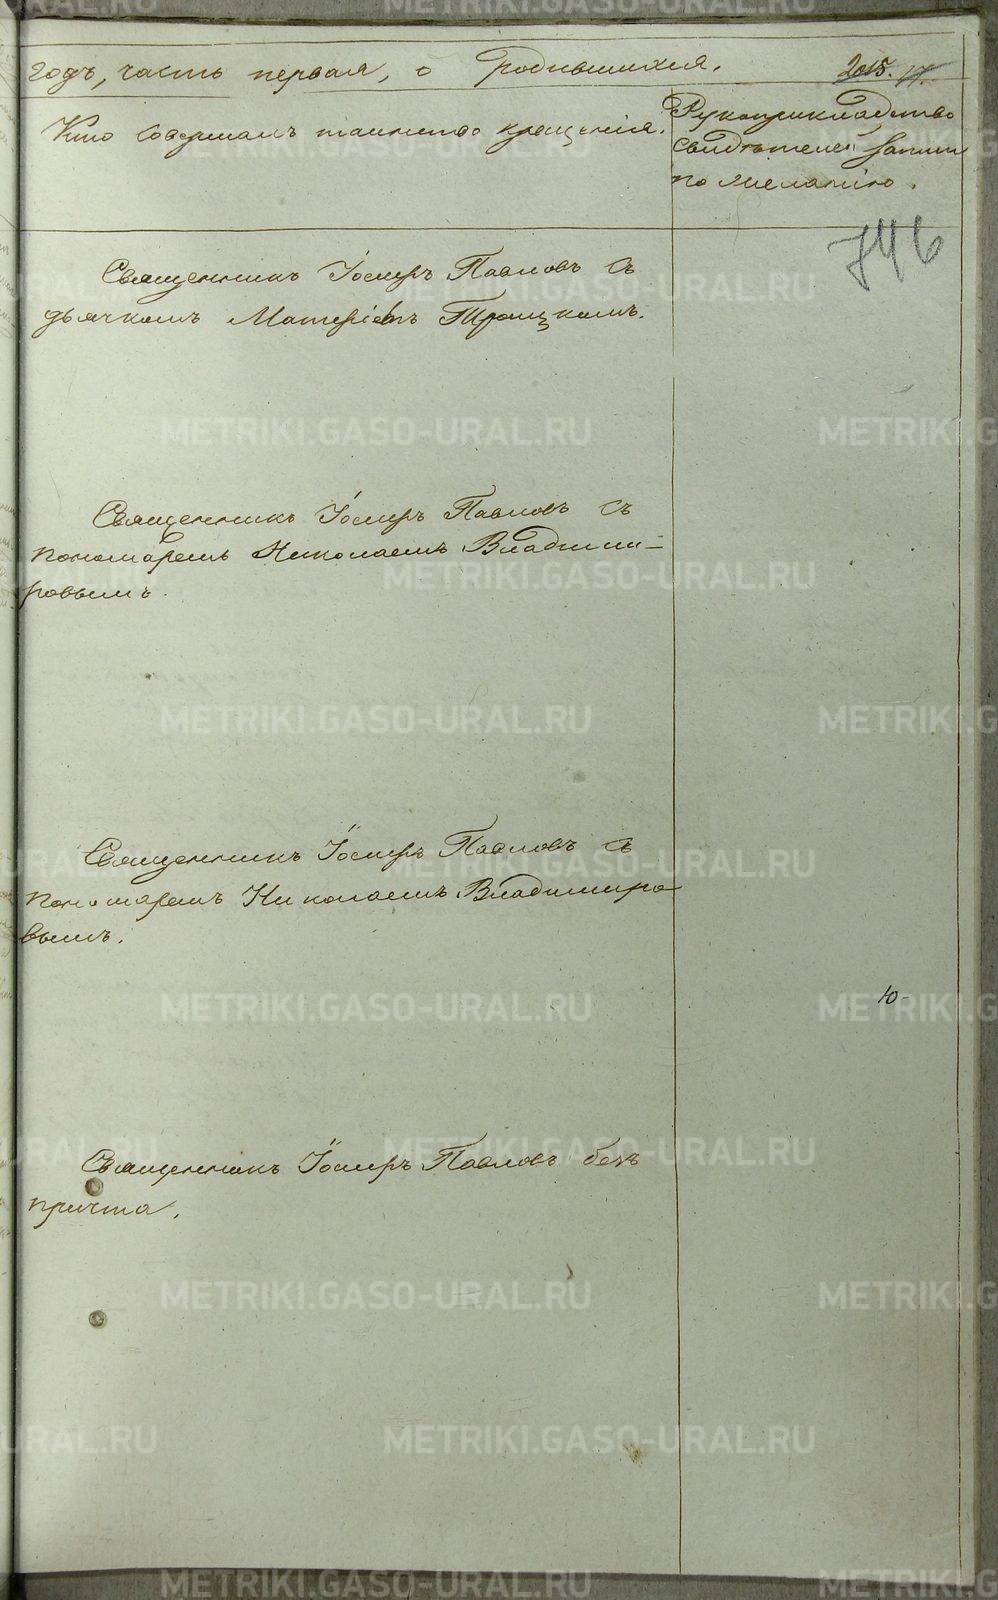 годъ, часть первая, о родившихся.
2015. 17.
Кто совершалъ таинство крещенія.
Рукоприкладство
свидѣтелей записи
по желанію.
746
Священникъ Іосифъ Павловъ съ
дьячкомъ Троицкимъ.
Священникъ Іосифъ Павловъ съ
пономаремъ Николаемъ Владими-
ровымъ.
Священникъ Іосифъ Павловъ съ
пономаремъ Николаемъ Владиміро
вымъ.
10
Священникъ Іосифъ Павловъ безъ
причта.
METRIKI.GASO-URAL.RU